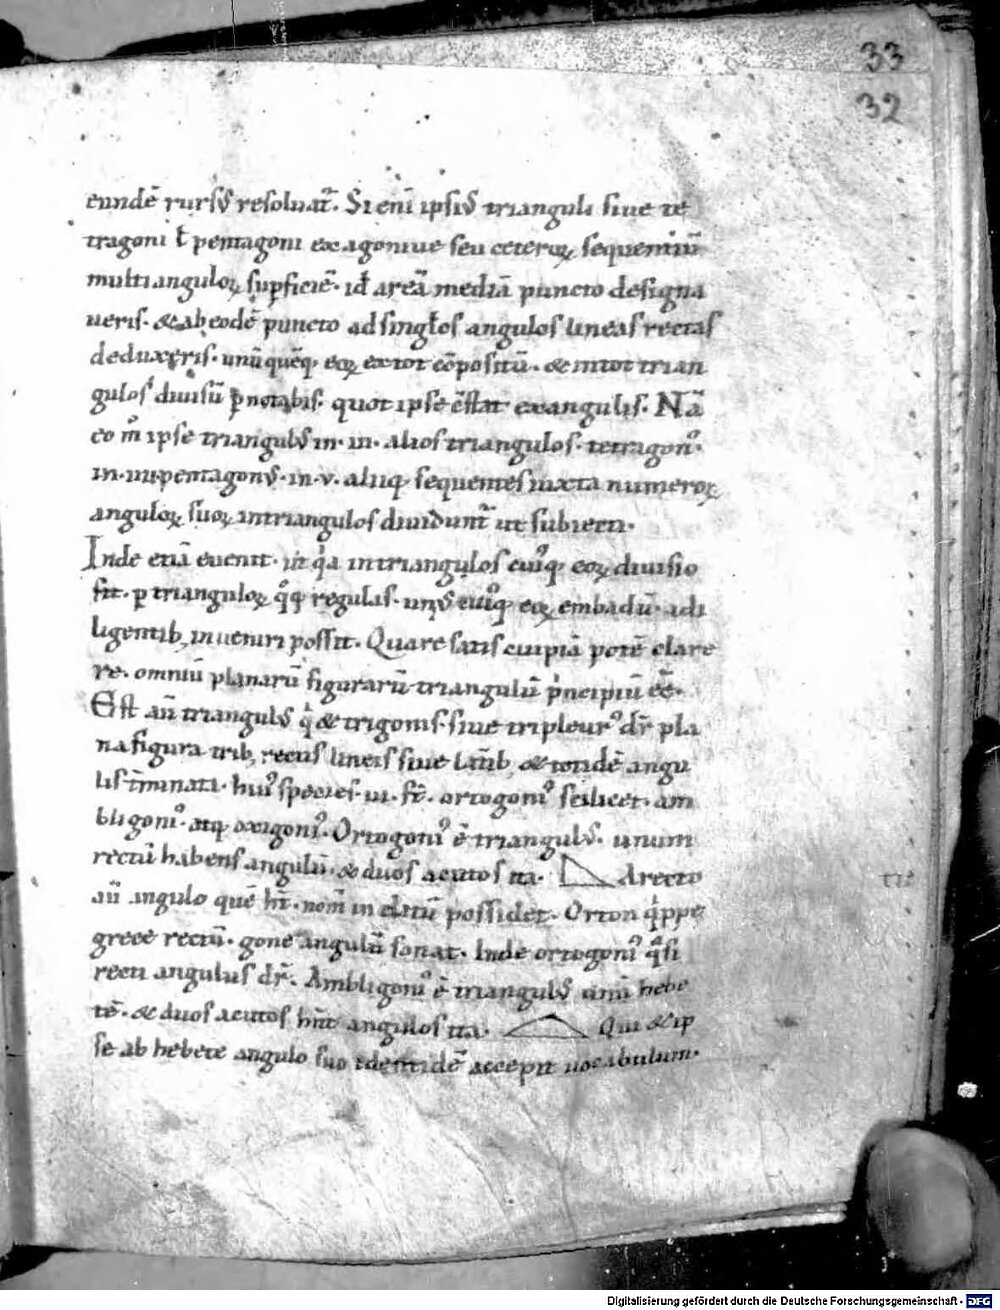 33
32
eundē rursꝰ resoluat᷑. Si eni̅ ipsiꝰ trianguli siue te
tragoni ł pentagoni exagoniue seu ceteroꝝ sequentiū
multianguloꝝ supficiē. id̄ areā mediā puncto designa
ueris. & ab eodē puncto ad singłos angulos lineas rectas
deduxeris. unūquēq; eoꝝ ex tot cōpositū. & in tot trian
gulos diuisū p̄notabis. quot ipse cōstat ex angulis. Nā
eo m̄ ipse triangulꝰ in .iii. alios triangulos. tetragonꝰ.
in .iiii. pentagonꝰ. in .v. aliiq; sequentes iuxta numeroꝝ
anguloꝝ suoꝝ in triangulos diuidunt᷑ ut subiecti.
Inde etiā euenit. ut q̇a in triangulos cuiꝰq; eoꝝ diuisio
fit. p trianguloꝝ q̊q; regulas. uerꝰ cuiꝰq; eoꝝ embadū. a di
ligentib; inueniri possit. Quare satis cuipiā potē clare
re. omniū planarū figurarū triangulū ṗncipiū eē.
Est aū triangulꝰ q̇ & trigonus. siue tripleurꝰ dr̄ pla
na figura trib; rectis lineis siue latib; & totidē angu
lis t̄minata. huiꝰ species .iii. st̄. ortogoniꝰ scilicet. am
bligoniꝰ. atq; oxigoniꝰ. Ortogoniꝰ ē triangulꝰ. unum
rectū habens angulū. & duos acutos ita. A recto
aū angulo quē ht̄. nom̄ inclitū possidet. Orton q̇ppe
grece rectū. gone angulū sonat. Inde ortogoniꝰ q̊si
recti angulus dr̄. Ambligoniꝰ ē triangulꝰ unū hebe
tē. & duos acutos hn̄t angulos ita. Qui & ip
se ab hebete angulo suo identidē accepit uocabulum.
Digitalisierung gefördert durch die Deutsche Forschungsgemeinschaft - DFG